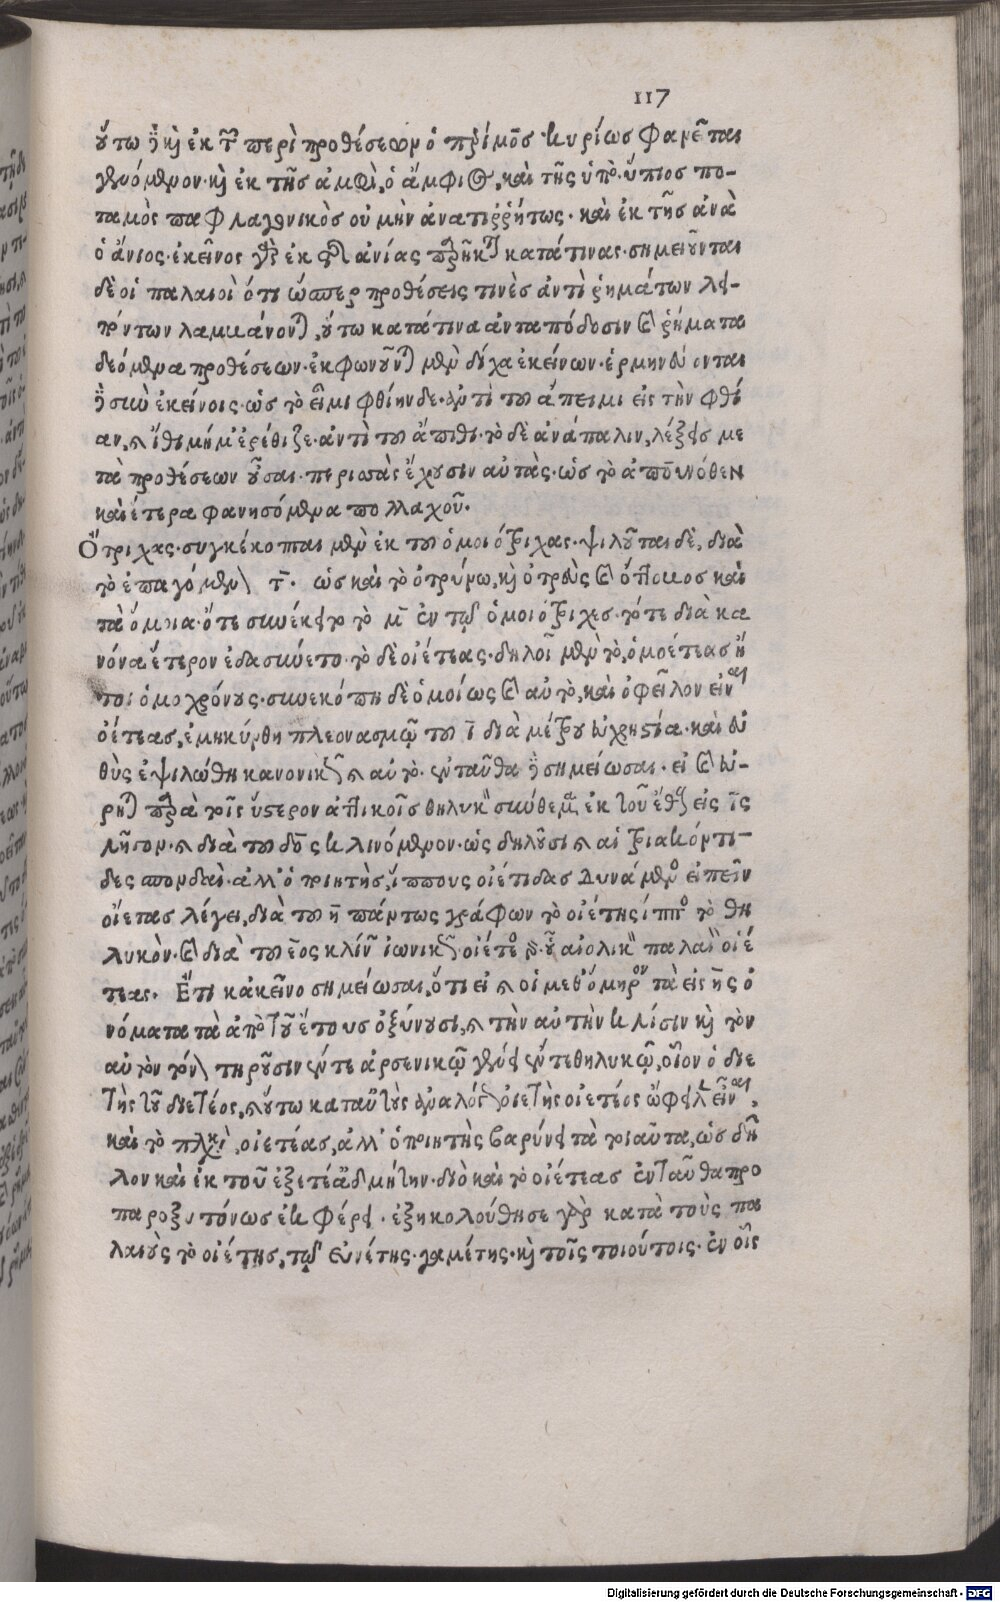 117
ὕτω ἢ καὶ ἐκ τ͂ περὶ προθέσεων ὁ πρίαμος κυρίως φαίνεται
γενόμενον. καὶ ἐκ τῆς ἀμφὶ, ὁ ἄμφιος, καὶ τῆς ὑπὸ. ὕπιος πο-
ταμὸς παφλαγονικὸς οὐ μὴν ἀναντιρρήτως. καὶ ἐκ τῆς ἀνὰ
ὁ ἄνιος. ἐκεῖνος γὰρ ἐκ τῆς ἀνίας παρῆκται κατάτινας. σημειοῦνται
δὲ οἱ παλαιοὶ ὅτι ὥσπερ προθέσεις τινὲς ἀντὶ ῥημάτων λεί-
πόντων λαμβάνονται, ὕτω κατάτινα ἀνταπόδοσιν καὶ ῥήματα
δεόμενα προθέσεων. ἐκφωνοῦνται μὲν δίχα ἐκείνων. ἑρμηνεύονται
ἢ σὺν ἐκείνοις. ὡς τὸ εἶμι φθίηνδε. ἀντὶ τοῦ ἄπειμι εἰς τὴν φθί
αν, καὶ ἴθι μή μ' ἐρέθιζε. ἀντὶ τοῦ ἄπιθι. τὸ δὲ ἀνάπαλιν, λέξεις με
τὰ προθέσεων οὖσαι. περισσὰς ἔχουσιν αὐτὰς. ὡς τὸ ἀπουνόθεν
καὶ ἕτερα φανησόμενα πολλαχοῦ.
Ὄτριχας. συγκέκοπται μὲν ἐκ τοῦ ὁμοιότριχας. ψιλοῦται δὲ, διὰ
τὸ ἐπαγόμενον τ̄. ὡς καὶ τὸ ὀτρύνω, καὶ ὀτρεὺς καὶ ὄτλοβος καὶ
τὰ ὅμοια. ὅτε συνέκειτο τὸ μ̄ ἐν τῷ ὁμοιότριχες. τότε διὰ κα
νόνα ἕτερον ἐδασύνετο. τὸ δὲ οἰέτεας. δηλοῖ μὲν τὸ, ὁμοέτεας ἤ
τοι ὁμοχρόνους. συνεκόπη δὲ ὁμοίως καὶ αὐτὸ, καὶ ὀφεῖλον εἶναι
ὀέτεας, ἐμηκύνθη πλεονασμῷ τοῦ ῑ διὰ μέτρου εὐχρηστία. καὶ εὐ
θὺς ἐψιλώθη κανονικῶς καὶ αὐτό. ἐνταῦθα ἢ σημείωσαι. εἰ καὶ εὕ-
ρηται παρὰ τοῖς ὕστερον ἀττικοῖς θηλυκὰ σύνθεμα ἐκ τοῦ ἔθους εἰς ῑς
λῆγον. καὶ διὰ τοῦ δος κλινόμενον. ὡς δηλοῦσι καὶ αἱ τριακόντι-
δες σπονδαὶ. ἀλλ' ὁ ποιητὴς, ἵππους οἰέτιδας δυνάμενος εἰπεῖν
οἰέτας λέγει, διὰ τοῦ η πάντως γράφων τὸ οἰέτης ἵππος τὸ θη
λυκὸν. καὶ διὰ τοῦ εος κλίνων ἰωνικῶς. οἰέτεος ἐξ οὗ αἰολικῶς παλαι οἰέ
τεας. Ἔτι κἀκεῖνο σημείωσαι, ὅτι εἰ καὶ οἱ μεθ' ὅμηρον τὰ εἰς ης ὀ
νόματα τὰ ἀπὸ τοῦ ἔτους ὀξύνουσι, καὶ τὴν αὐτὴν κλίσιν καὶ τὸν
αὐτὸν τόνον τηροῦσιν ἔντε ἀρσενικῷ γένει ἔντε θηλυκῷ, οἷον ὁ διε
τὴς τοῦ διετέος, καὶ ὕτω κατ' αὐτοὺς ἀναλόγως ὀιετὴς οἰετέος ὤφειλεν εἶναι.
καὶ τὸ πληθυντικὸν, οἰετέας, ἀλλ' ὁ ποιητὴς βαρύνει τὰ τοιαῦτα, ὡς δῆ
λον καὶ ἐκ τοῦ ἑξετέα ἀδμήτην. διὸ καὶ τὸ οἰέτεας ἐνταῦθα προ
παροξυτόνως ἐκφέρει. ἐξηκολούθησε γὰρ κατὰ τοὺς πα
λαιοὺς τὸ οἰέτης, τῷ εὐνέτης. γαμέτης. καὶ τοῖς τοιούτοις. ἐν οἷς
Digitalisierung gefördert durch die Deutsche Forschungsgemeinschaft - DFG